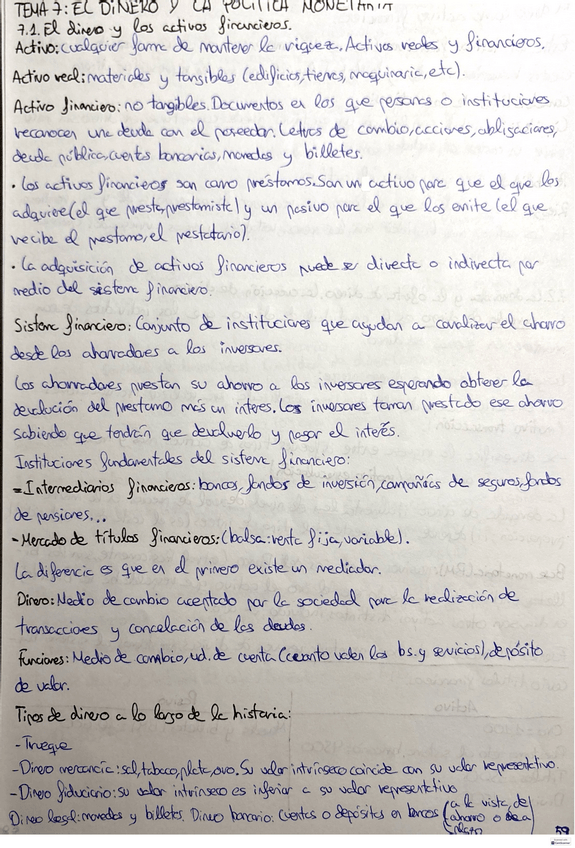 TEMA 7: EL DINERO Y LA POLÍTICA MONETARIA
7.1. El dinero y los activos financieros.
Activo: cualquier forma de mantener la riqueza. Activos reales y financieros.
Activo real: materiales y tangibles (edificios, tierras, maquinaria, etc).
Activo financiero: no tangibles. Documentos en los que personas o instituciones
reconocen una deuda con el poseedor. Letras de cambio, acciones, obligaciones,
deuda pública, cuentas bancarias, monedas y billetes.
· Los activos financieros son como préstamos. Son un activo para que el que los
adquiere (el que presta, prestamista) y un pasivo para el que los emite (el que
recibe el prestamo, el prestatario).
· La adquisición de activos financieros puede ser directa o indirecta por
medio del sistema financiero.
Sistema financiero: Conjunto de instituciones que ayudan a canalizar el ahorro
desde los ahorradores a los inversores.
Los ahorradores prestan su ahorro a los inversores esperando obtener la
devolución del prestamo más un interes. Los inversores toman prestado ese ahorro
sabiendo que tendrán que devolverlo y pagar el interés.
Instituciones fundamentales del sistema financiero:
- Intermediarios financieros: bancos, fondos de inversión, compañías de seguros, fondos
de pensiones...
- Mercado de títulos financieros: (bolsa: renta fija, variable).
La diferencia es que en el primero existe un mediador.
Dinero: Medio de cambio aceptado por la sociedad para la realización de
transacciones y cancelación de las deudas.
Funciones: Medio de cambio, ud. de cuenta (cuanto valen los bs. y servicios), depósito
de valor.
Tipos de dinero a lo largo de la historia:
- Trueque
- Dinero mercancía: sal, tabaco, plata, oro. Su valor intrínseco coincide con su valor representativo.
- Dinero fiduciario: su valor intrinseco es inferior a su valor representativo
Dinero legal: monedas y billetes. Dinero bancario: cuentas o depósitos en bancos (a la vista, de
ahorro o a
plazo)
59